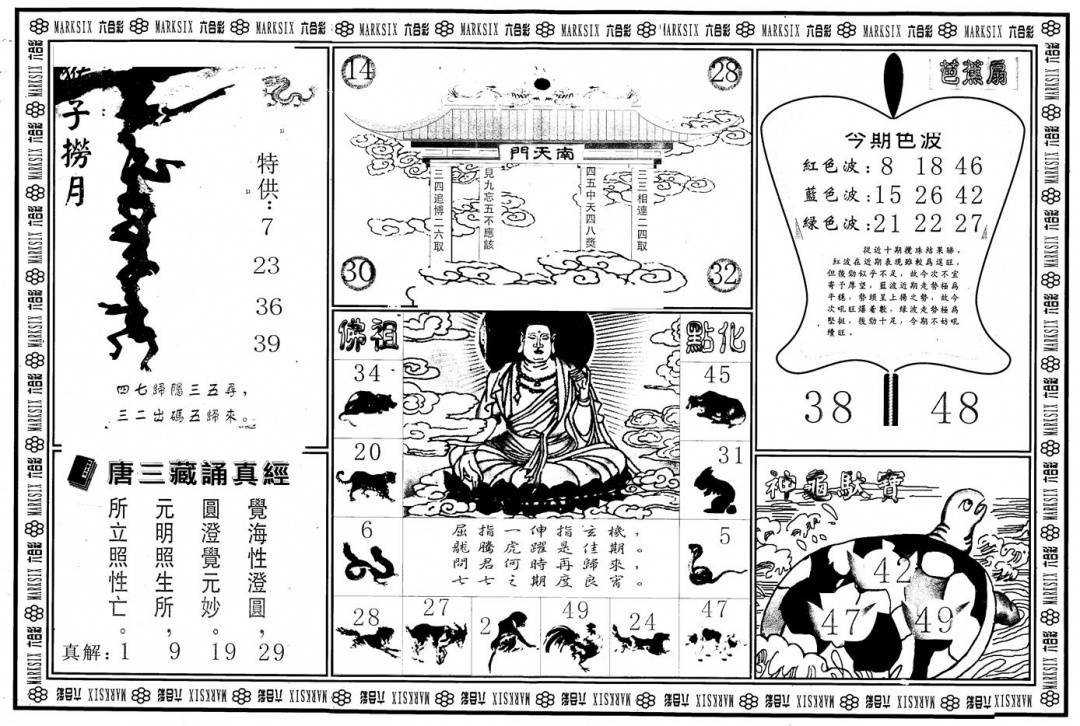 MARKSIX 六合彩 MARKSIX 六合彩 MARKSIX 六合彩 MARKSIX 六合彩 MARKSIX 六合彩 MARKSIX 六合彩 MARKSIX 六合彩 MARKSIX 六合彩 MARKSIX 六合彩 MARKSIX 六合彩
猴子撈月
特供：
7
23
36
39
四七歸隱三五尋，
三二出碼五歸來。
唐三藏誦真經
覺海性澄圓，
圓澄覺元妙。
元明照生所，
所立照性亡。
真解：1 9 19 29
14
28
南天門
三三相連二四取
四五中天四八獎
見九忘五不應該
三四追博二六取
30
32
佛祖
點化
34
45
20
31
6
5
玄機，
指佳期。
伸躍是再來，
一虎何時度良宵。
28
27
2
49
24
47
芭蕉扇
今期色波
紅色波：8 18 46
藍色波：15 26 42
綠色波：21 22 27
從近十期攪珠結果睇，
紅波在近期表現雖較爲逞旺，
但後勁似乎不足，故今次不宜
寄予厚望，藍波近期走勢極爲
平穩，勢頭呈上揚之勢，故今
次吼旺爆着數，綠波走勢極爲
堅挺，後勁十足，今期不妨吼
續旺。
38
48
神龜馱寶
42
47
49